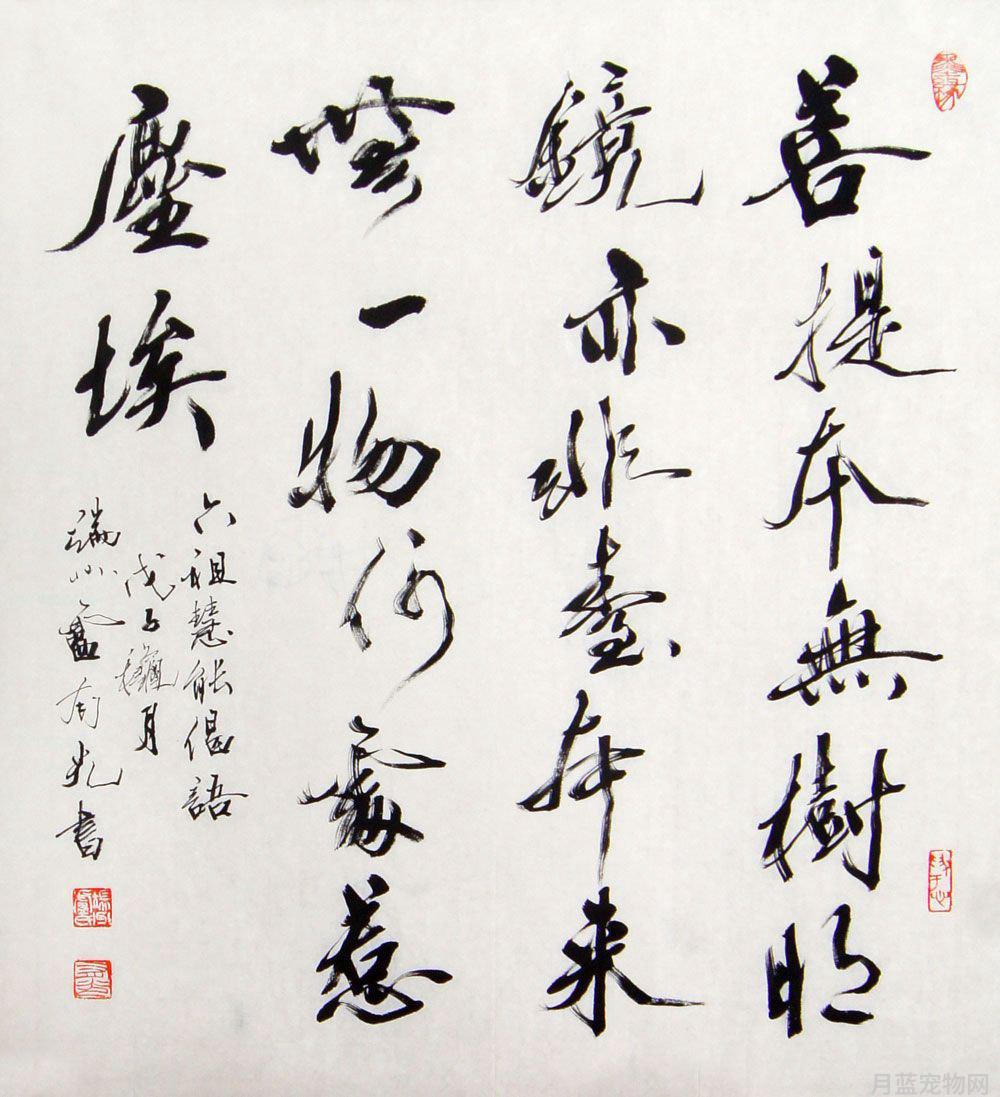 菩提本無樹明
鏡亦非臺本来
無一物何處惹
塵埃
六祖慧能偈語
戊子穐月
端州盧有光書
月蓝宠物网